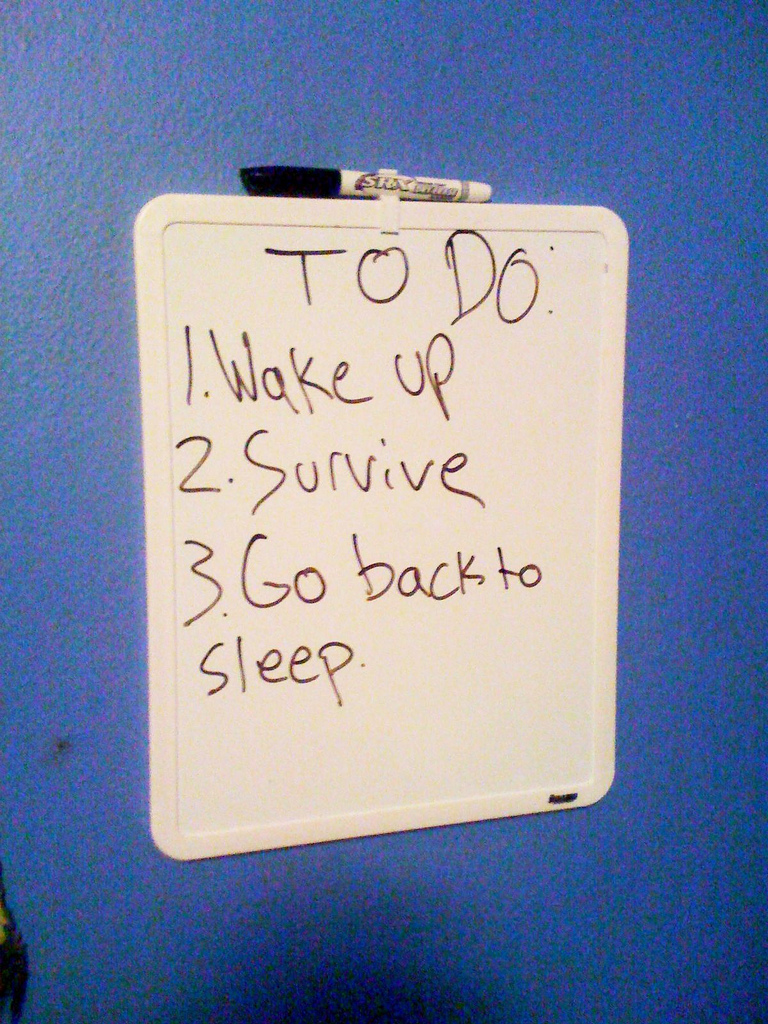 SRX
TO DO:
1. Wake up
2. Survive
3. Go back to
sleep.